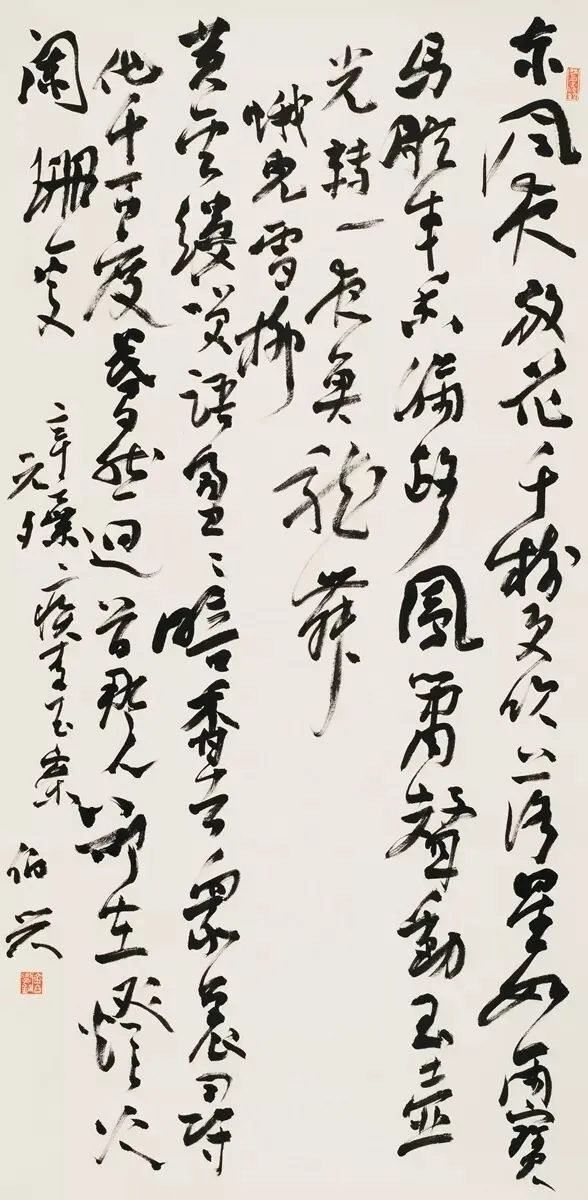 東風夜放花千樹更吹落星如雨寶
馬雕車香滿路鳳簫聲動玉壺
光轉一夜魚龍舞
蛾兒雪柳
黃金縷笑語盈盈暗香去眾裏尋
他千百度驀然迴首那人卻在燈火
闌珊處
辛棄疾青玉案
元夕
伯